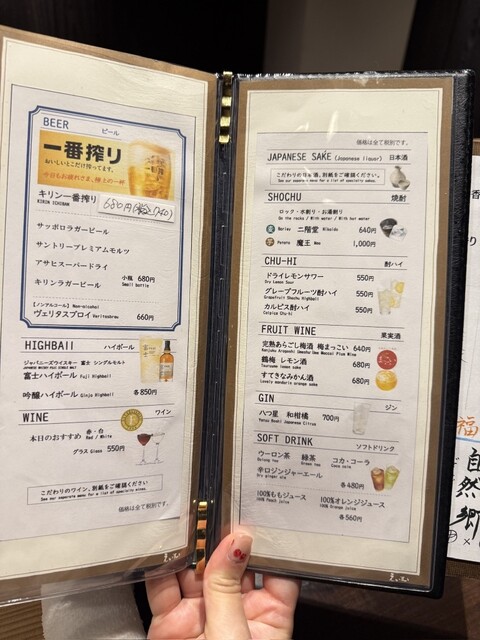 BEER ビール
一番搾り
おいしいとこだけ搾ってます。
今日もお疲れさま、極上の一杯
キリン一番搾り
KIRIN ICHIBAN
680円(税込748)
サッポロラガービール
サントリープレミアムモルツ
アサヒスーパードライ
キリンラガービール
小瓶 680円
Small bottle
【ノンアルコール】Non-alcohol
ヴェリタスブロイ Veritasbrau 660円
HIGHBAll ハイボール
ジャパニーズウイスキー 富士 シングルモルト
JAPANESE WHISKY FUJI SINGLE MALT
富士ハイボール Fuji Highball
吟醸ハイボール Ginjo Highball 各850円
WINE ワイン
本日のおすすめ 赤・白
Red / White
グラス Glass 550円
こだわりのワイン、別紙をご確認ください
See our separate menu for a list of specialty wines.
価格は全て税別です。
価格は全て税別です。
JAPANESE SAKE (Japanese liquor) 日本酒
こだわりの日本酒、別紙をご確認ください。
See our separate menu for a list of specialty sake.
SHOCHU 焼酎
ロック・水割り・お湯割り
On the rocks / With water / With hot water
麦 Barley 二階堂 Nikaido 640円
芋 Potato 魔王 Mao 1,000円
CHU-HI 酎ハイ
ドライレモンサワー 550円
Dry Lemon Sour
グレープフルーツ酎ハイ 550円
Grapefruit Shochu Highball
カルピス酎ハイ 550円
Calpico Chu-hi
FRUIT WINE 果実酒
完熟あらごし梅酒 梅まっこい 640円
鶴梅 レモン酒 680円
Tsuruume Lemon
すてきなみかん酒 680円
Lovely mandarin orange sake
GIN ジン
八つ星 和柑橘 700円
Yatsu Boshi Japanese Citrus
SOFT DRINK ソフトドリンク
ウーロン茶 緑茶 コカ・コーラ
Oolong tea Green tea Coca cola
辛口ジンジャーエール 各480円
Dry ginger ale
100%ももジュース 100%オレンジジュース
100% Peach Juice 100% Orange Juice
各560円
福
自然郷